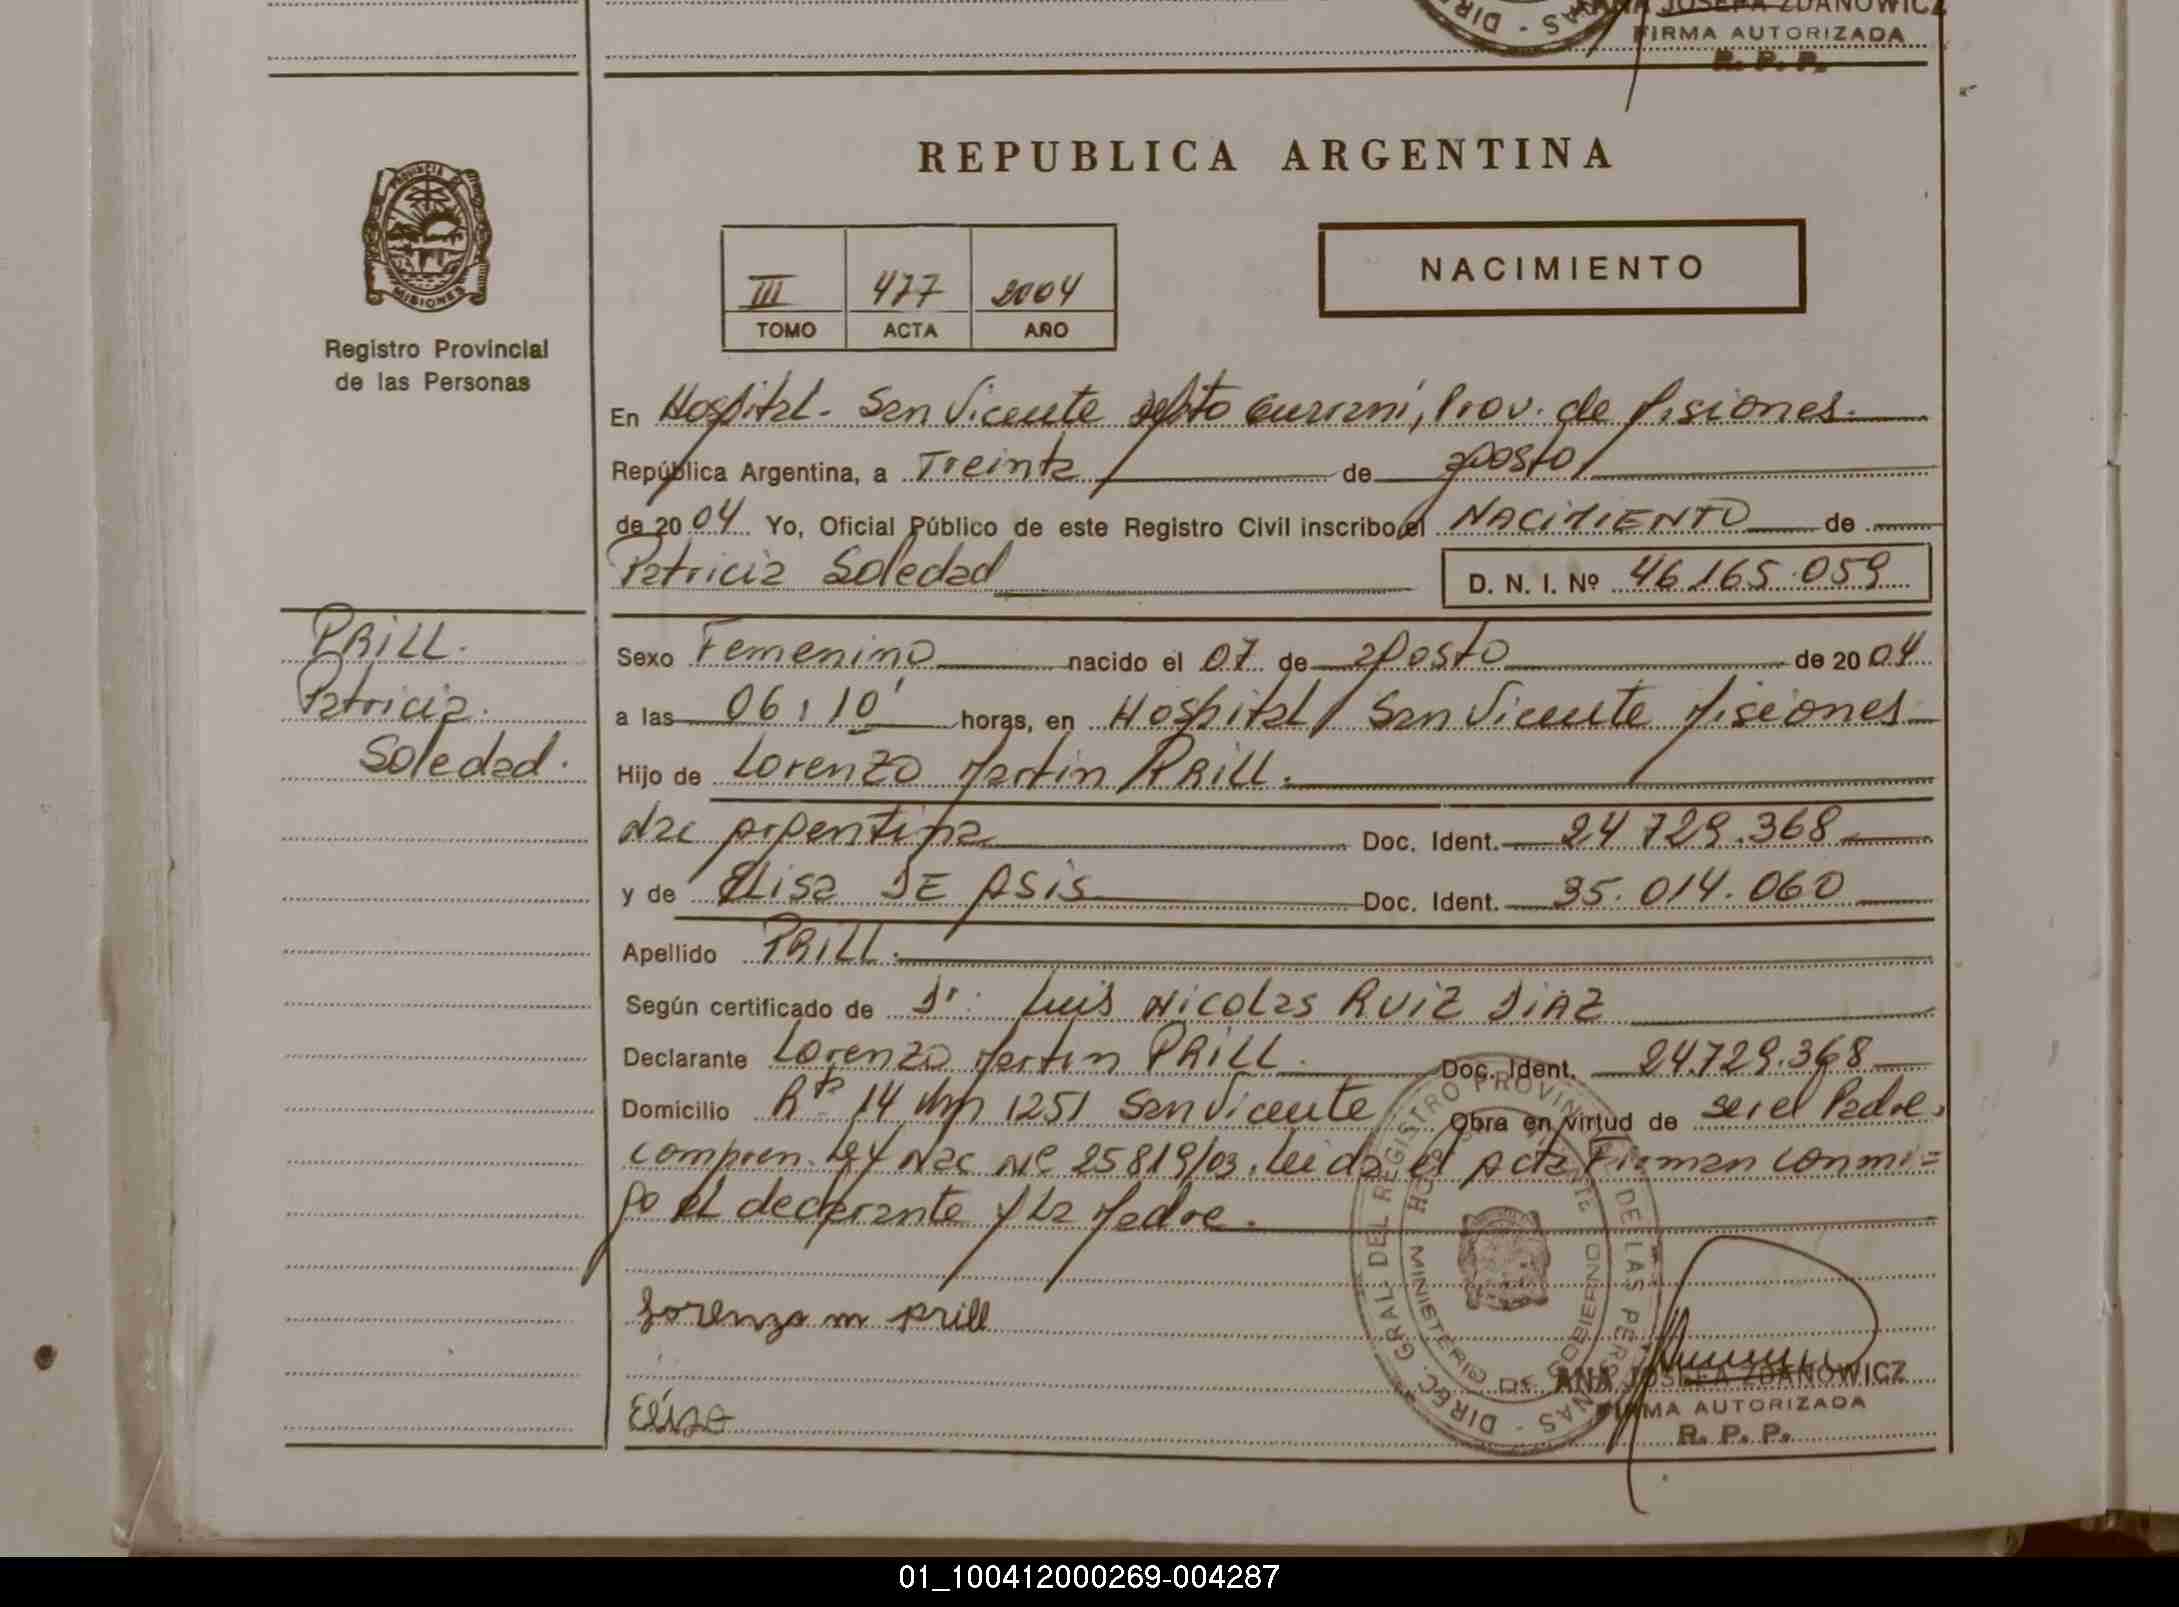 ANA JOSEFA ZDANOWICZ
FIRMA AUTORIZADA
R. P. P.
REPUBLICA ARGENTINA
PROVINCIA DE
MISIONES
Registro Provincial
de las Personas
III 477 2004
TOMO ACTA AÑO
NACIMIENTO
En Hospital - San Vicente depto Guarani, Prov. de Misiones.
República Argentina, a Treinta de agosto
de 2004 Yo, Oficial Público de este Registro Civil inscribo el NACIMIENTO de
Patricia Soledad D. N. I. Nº 46.165.059
PRILL.
Patricia.
Soledad.
Sexo Femenino nacido el 07 de agosto de 2004
a las 06:10' horas, en Hospital San Vicente Misiones
Hijo de Lorenzo Martin PRILL.
Nac Argentina Doc. Ident. 24.729.368
y de Elisa DE ASIS Doc. Ident. 35.014.060
Apellido PRILL.
Según certificado de Dr. Luis Nicolas RUIZ DIAZ
Declarante Lorenzo Martin PRILL. Doc. Ident. 24.729.368
Domicilio Rta 14 km 1251 San Vicente Obra en virtud de ser el Padre.
Ley Nac Nº 25819/03. Leida el Acta Firman conmi=
go el declarante y la Madre.
Lorenzo m prill
Elisa
DIREC. GRAL. DEL REGISTRO PROVINCIAL DE LAS PERSONAS
MINISTERIO DE GOBIERNO
ANA JOSEFA ZDANOWICZ
FIRMA AUTORIZADA
R. P. P.
01_100412000269-004287